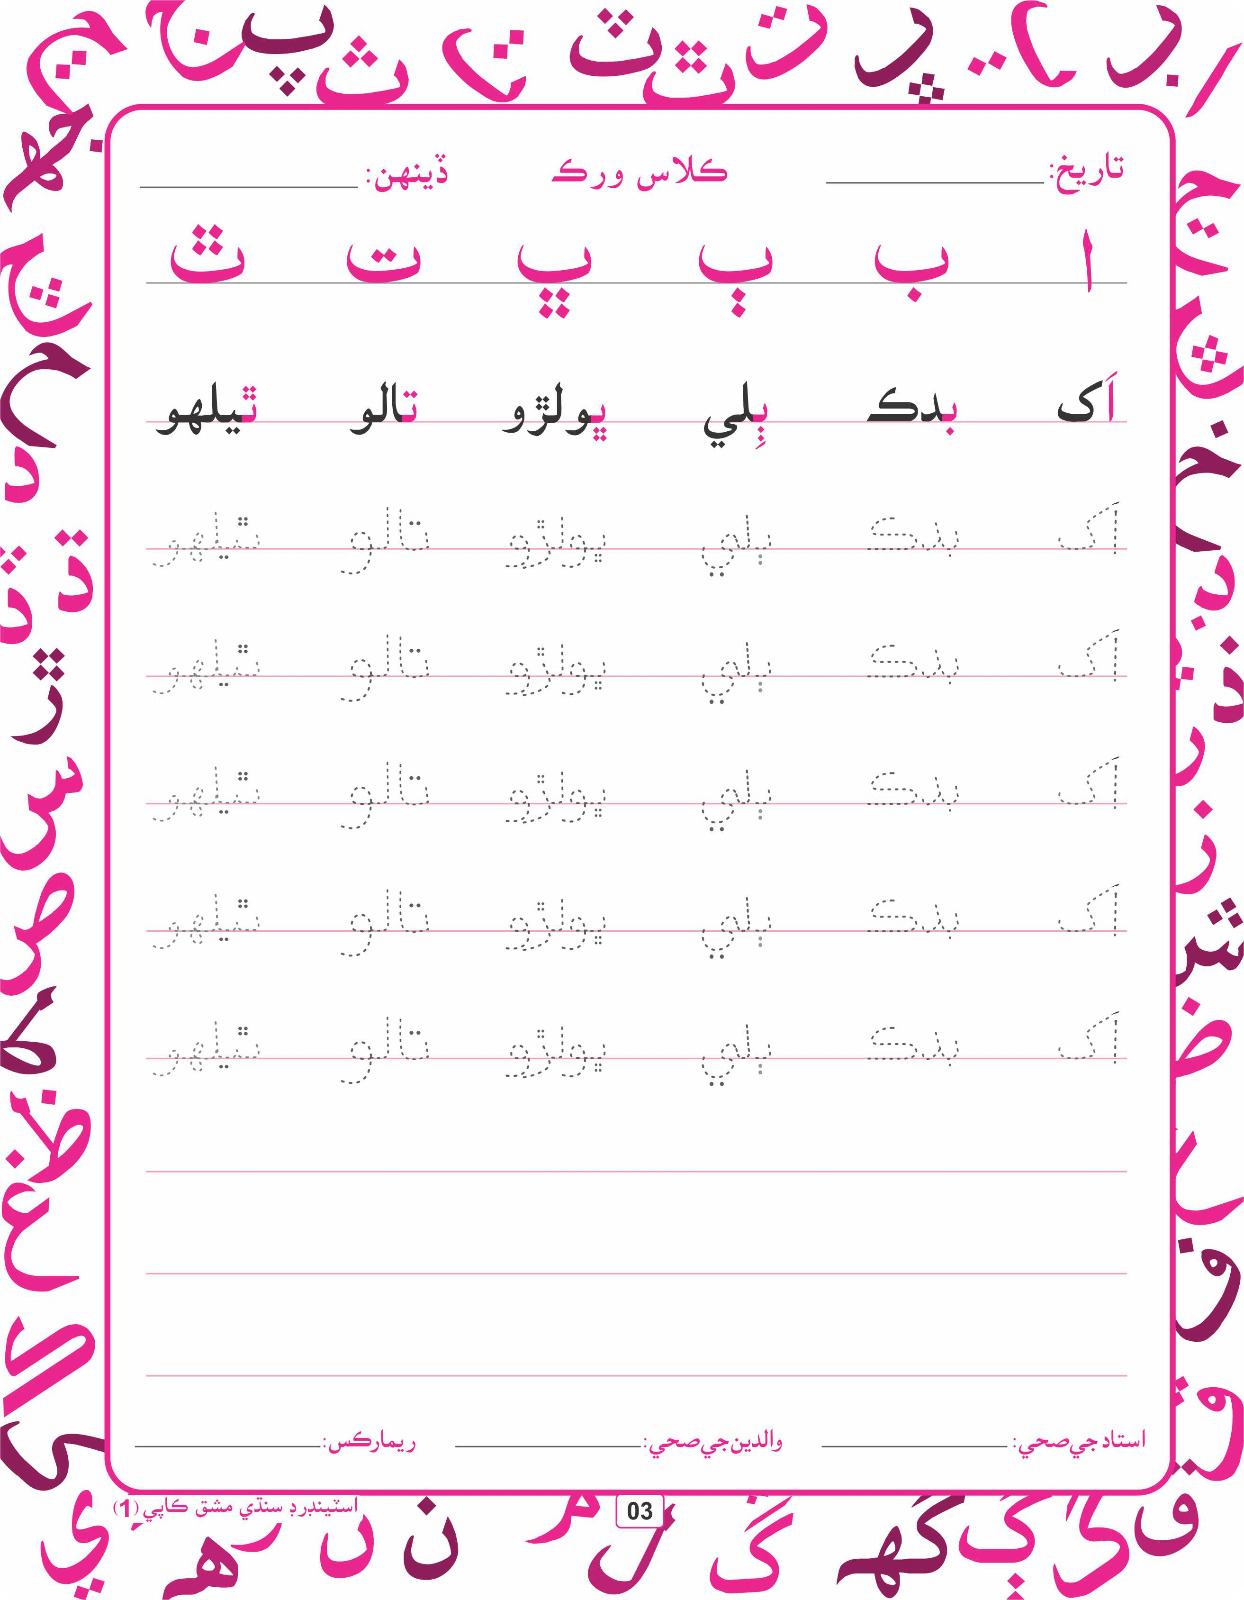 تاريخ: ڪلاس ورڪ ڏينهن:
ا ب ٻ ڀ ت ٿ
اَک بدڪ ٻِلي ڀولڙو تالو ٿيلهو
اَک بدڪ ٻلي ڀولڙو تالو ٿيلهو
اَک بدڪ ٻلي ڀولڙو تالو ٿيلهو
اَک بدڪ ٻلي ڀولڙو تالو ٿيلهو
اَک بدڪ ٻلي ڀولڙو تالو ٿيلهو
اَک بدڪ ٻلي ڀولڙو تالو ٿيلهو
استاد جي صحي: والدين جي صحي: ريمارڪس:
03
اسٽينڊرڊ سنڌي مشق ڪاپي (1)